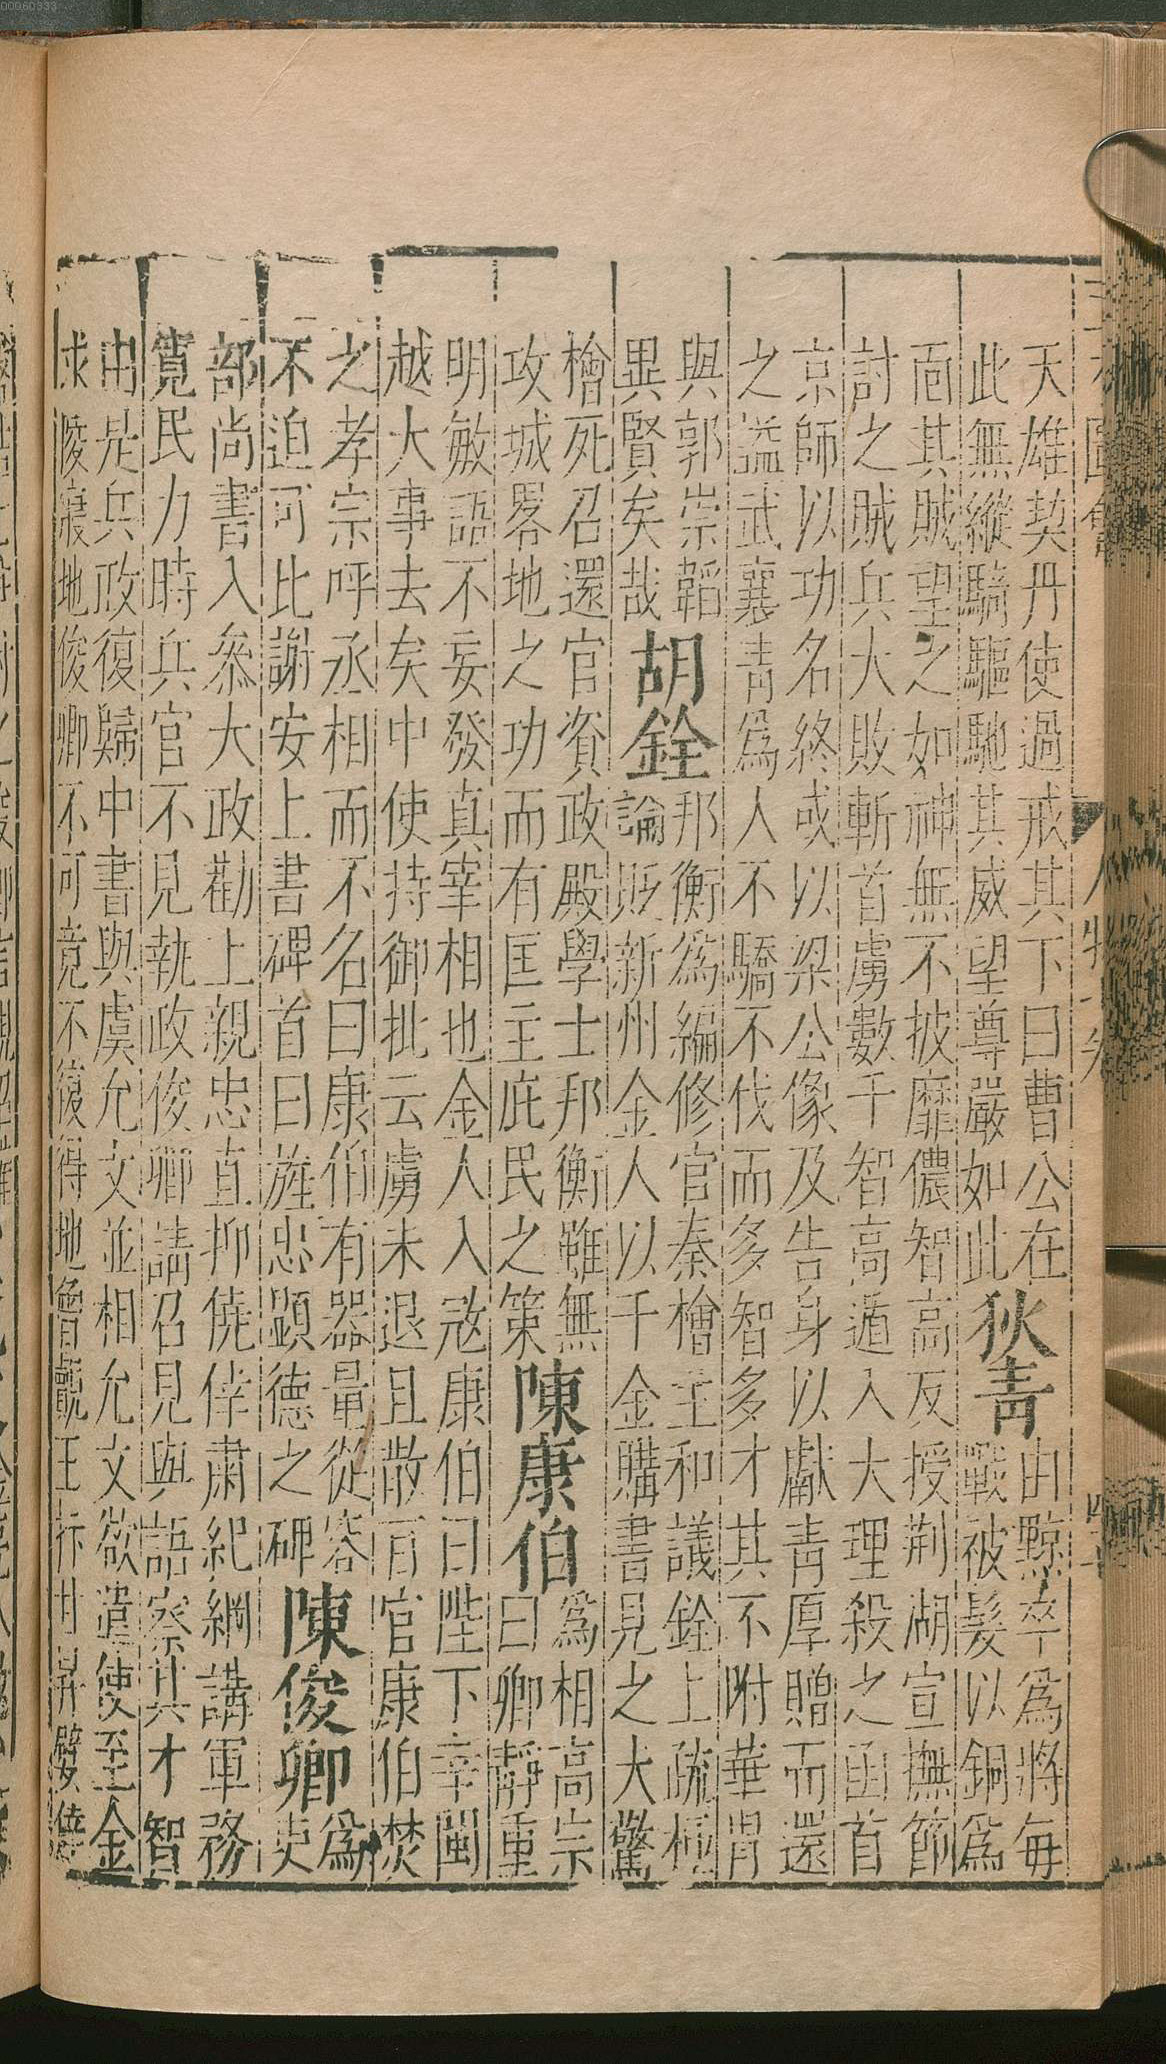 三才圖會
人物六卷
天雄契丹使過戒其下曰曹公在
此無縱騎驅馳其威望尊嚴如此
狄青
由黥卒為將每
戰被髮以銅為
面其賊望之如神無不披靡儂智高反授荊湖宣撫節
討之賊兵大敗斬首虜數千智高遁入大理殺之函首
京師以功名終或以梁公像及告身以獻青厚贈而還
之謚武襄青為人不驕不伐而多智多才其不附華胄
與郭崇韜
異賢矣哉
胡銓
邦衡為編修官秦檜主和議銓上疏極
論貶新州金人以千金購書見之大驚
檜死召還官資政殿學士邦衡雖無
攻城畧地之功而有匡主庇民之策
陳康伯
為相高宗
曰卿靜重
明敏語不妄發真宰相也金人入冦康伯曰陛下幸閩
越大事去矣中使持御批云虜未退且散百官康伯焚
之孝宗呼丞相而不名曰康伯有器量從容
不迫可比謝安上書碑首曰旌忠顯德之碑
陳俊卿
為
吏
部尚書入叅大政勸上親忠直抑僥倖肅紀綱講軍務
寬民力時兵官不見執政俊卿請召見與語察其才智
由是兵政復歸中書與虞允文並相允文欲遣使至金
求陵寢地俊卿不可竟不復得地曾覿王抃甘昪嬖倖